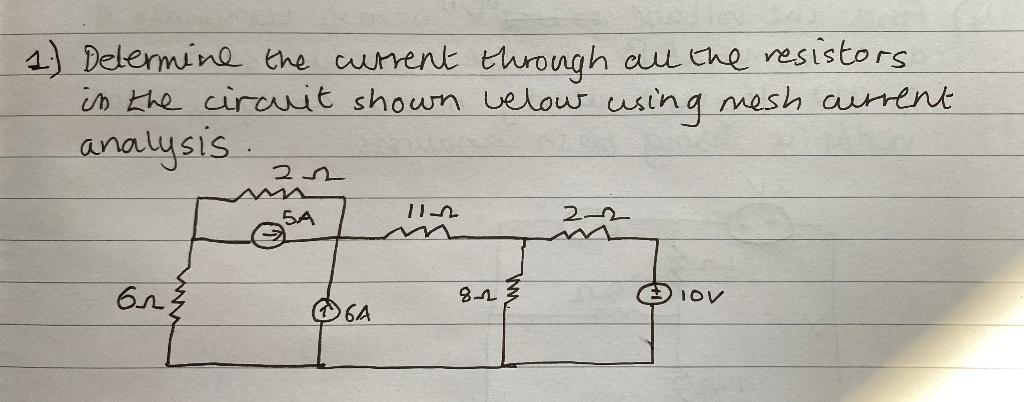 1.) Determine the current through all the resistors
in the circuit shown below using mesh current
analysis.
2Ω
5A
11Ω
2Ω
6Ω
6A
8Ω
10V